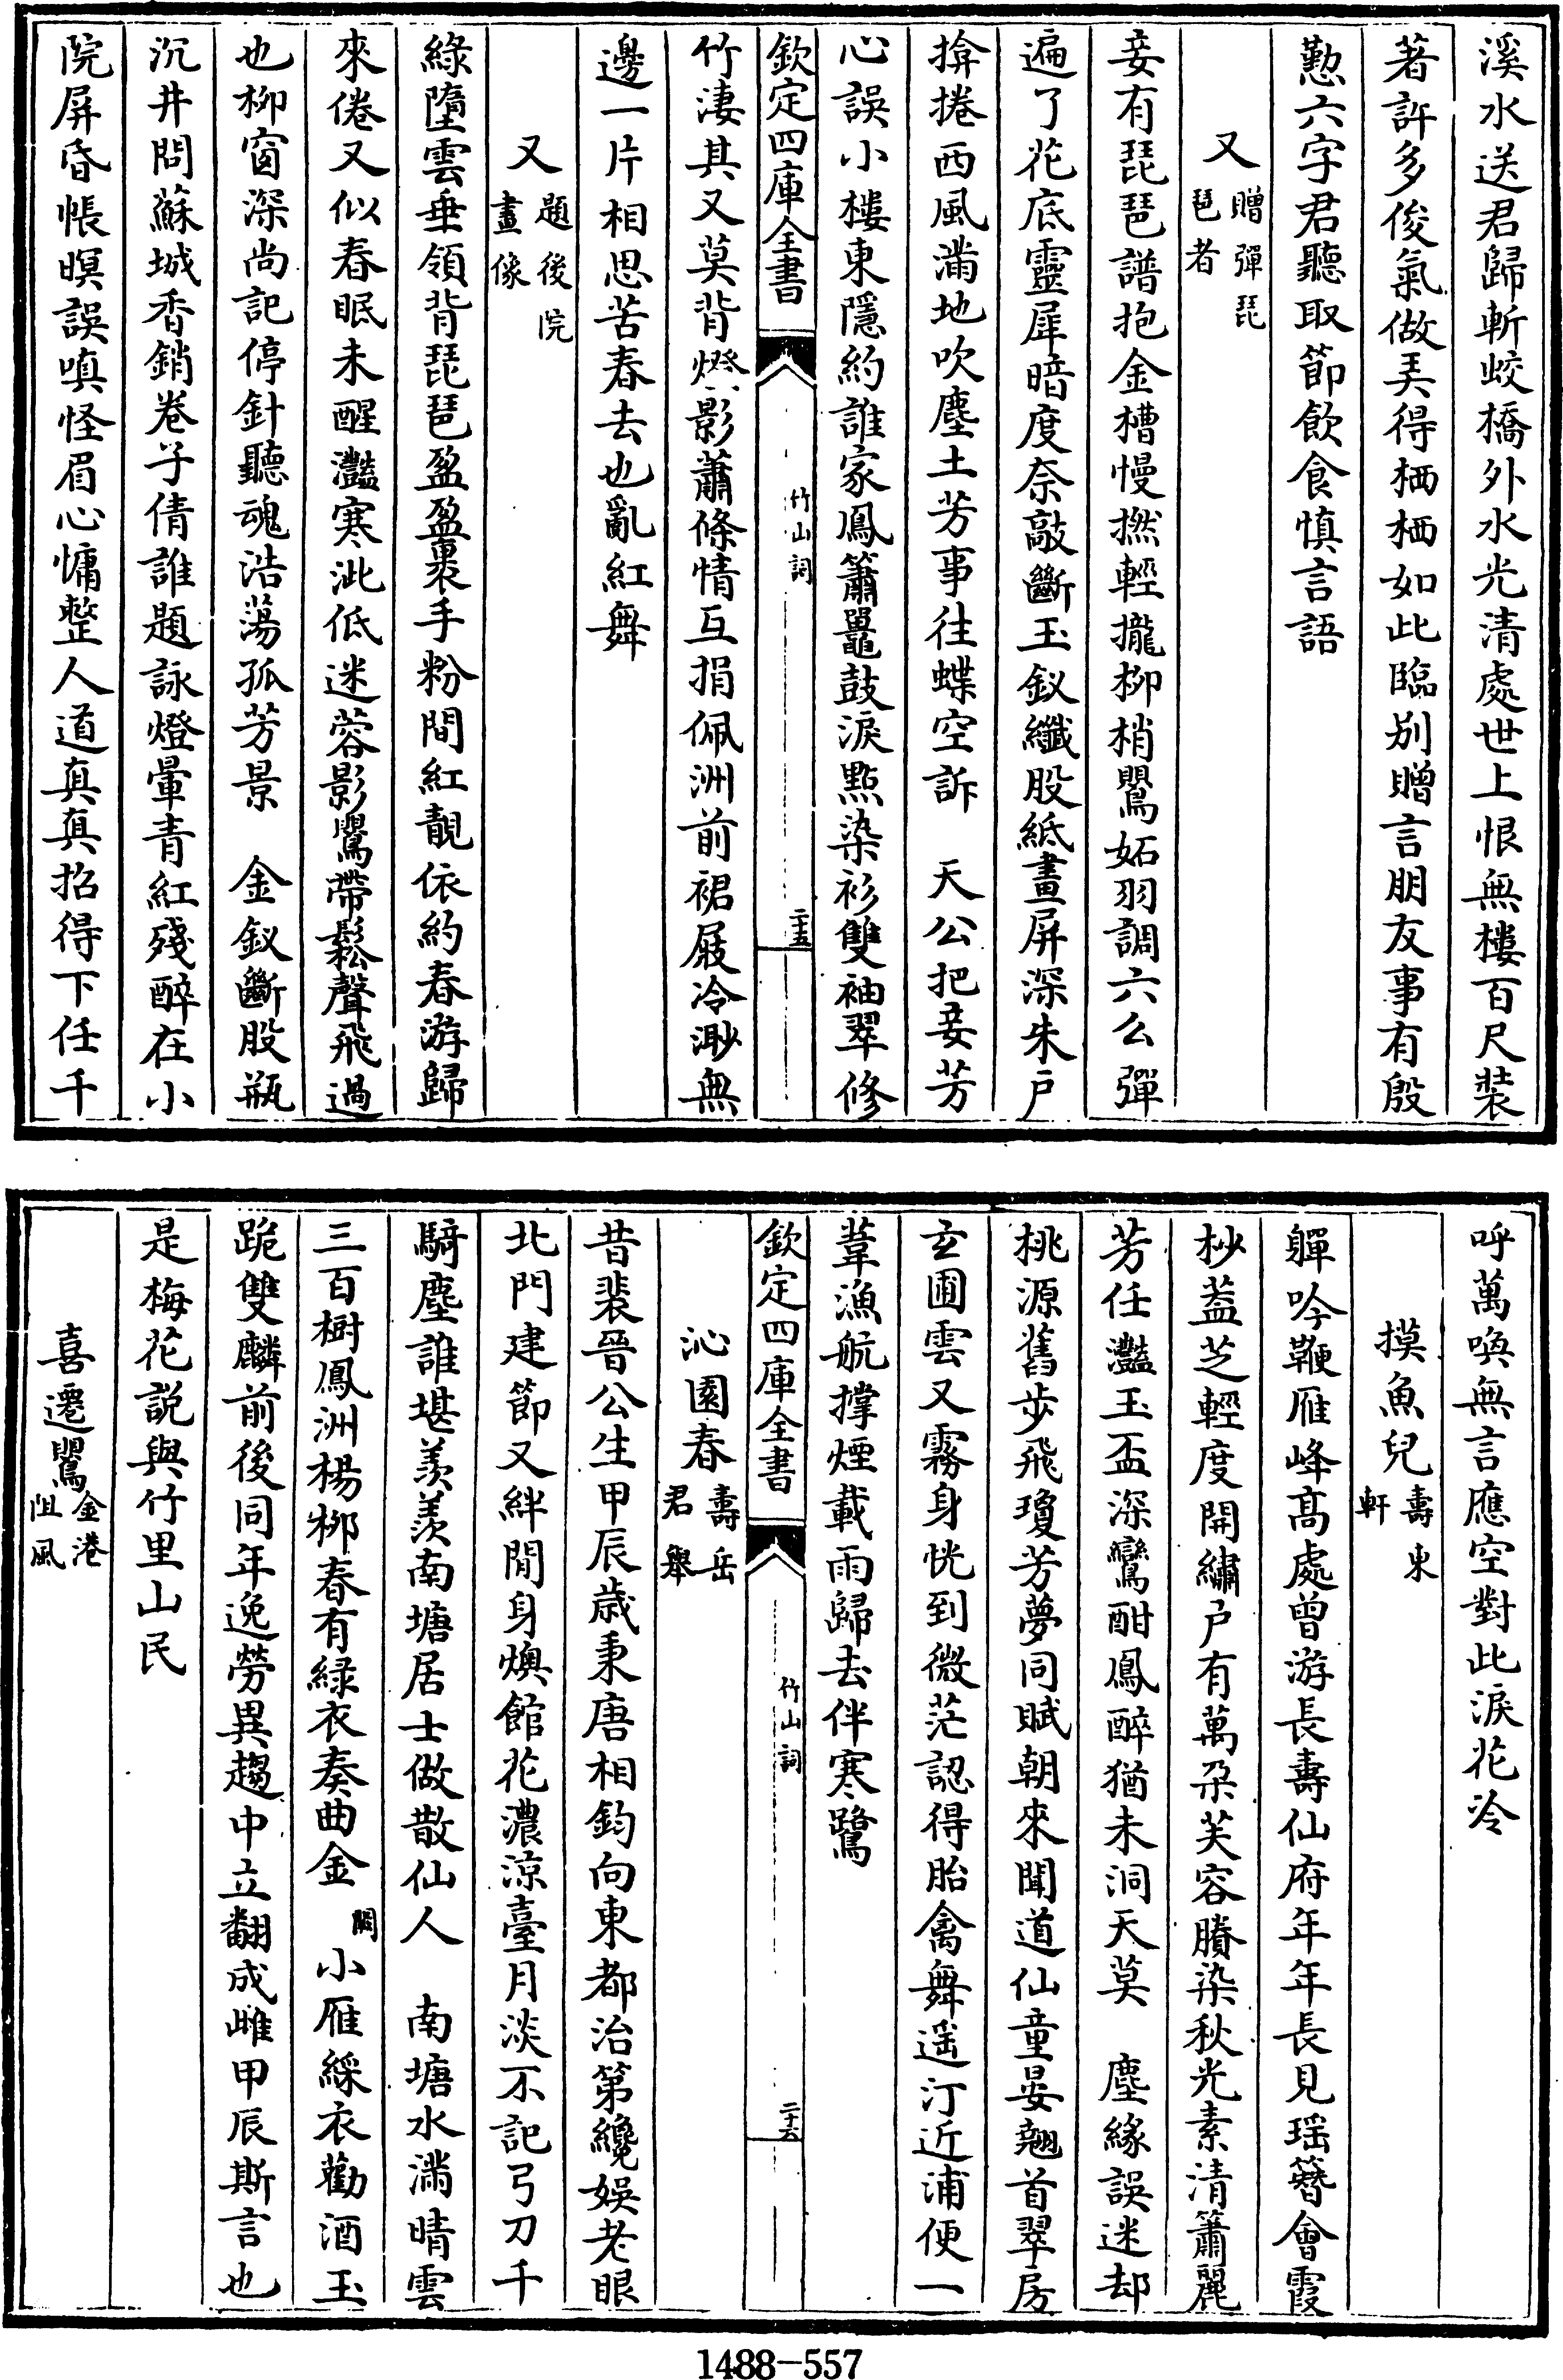 溪水送君歸斬蛟橋外水光清處世上恨無樓百尺裝
著許多俊氣做弄得栖栖如此臨别贈言朋友事有殷
懃六字君聽取節飲食慎言語
又贈彈琵琶者
妾有琵琶譜抱金槽慢撚輕攏柳梢鶯妬羽調六么彈
遍了花底靈犀暗度奈敲斷玉釵纖股紙畫屏深朱户
揜捲西風滿地吹塵土芳事往蝶空訴　天公把妾芳
心誤小樓東隱約誰家鳳簫鼉鼓淚點染衫雙袖翠修
欽定四庫全書　竹山詞　二十五
竹淒其又莫背燈影蕭條情互捐佩洲前裙屐冷渺無
邊一片相思苦春去也亂紅舞
又題後院畫像
綠墮雲垂領背琵琶盈盈裹手粉間紅靚依約春游歸
來倦又似春眠未醒灩寒泚低迷蓉影鸎帶鬆聲飛過
也柳窗深尚記停針聽魂浩蕩孤芳景　金釵斷股瓶
沉井問蘇城香銷卷子倩誰題詠燈暈青紅殘醉在小
院屏昏帳暝誤嗔怪眉心慵整人道真真招得下任千
呼萬喚無言應空對此淚花冷
摸魚兒壽東軒
軃吟鞭雁峰髙處曾游長壽仙府年年長見瑶簪會霞
杪葢芝輕度開繡户有萬朶芙容賸染秋光素清簫麗
芳任灩玉盃深鸞酣鳳醉猶未洞天莫　塵緣誤迷却
桃源舊步飛瓊芳夢同賦朝來聞道仙童晏翹首翠房
玄圃雲又霧身恍到微茫認得胎禽舞遥汀近浦便一
葦漁航撑煙載雨歸去伴寒鷺
欽定四庫全書　竹山詞　二十六
沁園春壽岳君舉
昔裴晉公生甲辰歲秉唐相鈞向東都治第纔娛老眼
北門建節又絆閒身燠館花濃涼臺月淡不記弓刀千
騎塵誰堪羨羨南塘居士做散仙人　南塘水滿晴雲
三百樹鳳洲楊栁春有緑衣奏曲金闕小雁綵衣勸酒玉
跪雙麟前後同年逸勞異趨中立翻成雌甲辰斯言也
是梅花説與竹里山民
喜遷鶯金港阻風
1488-557